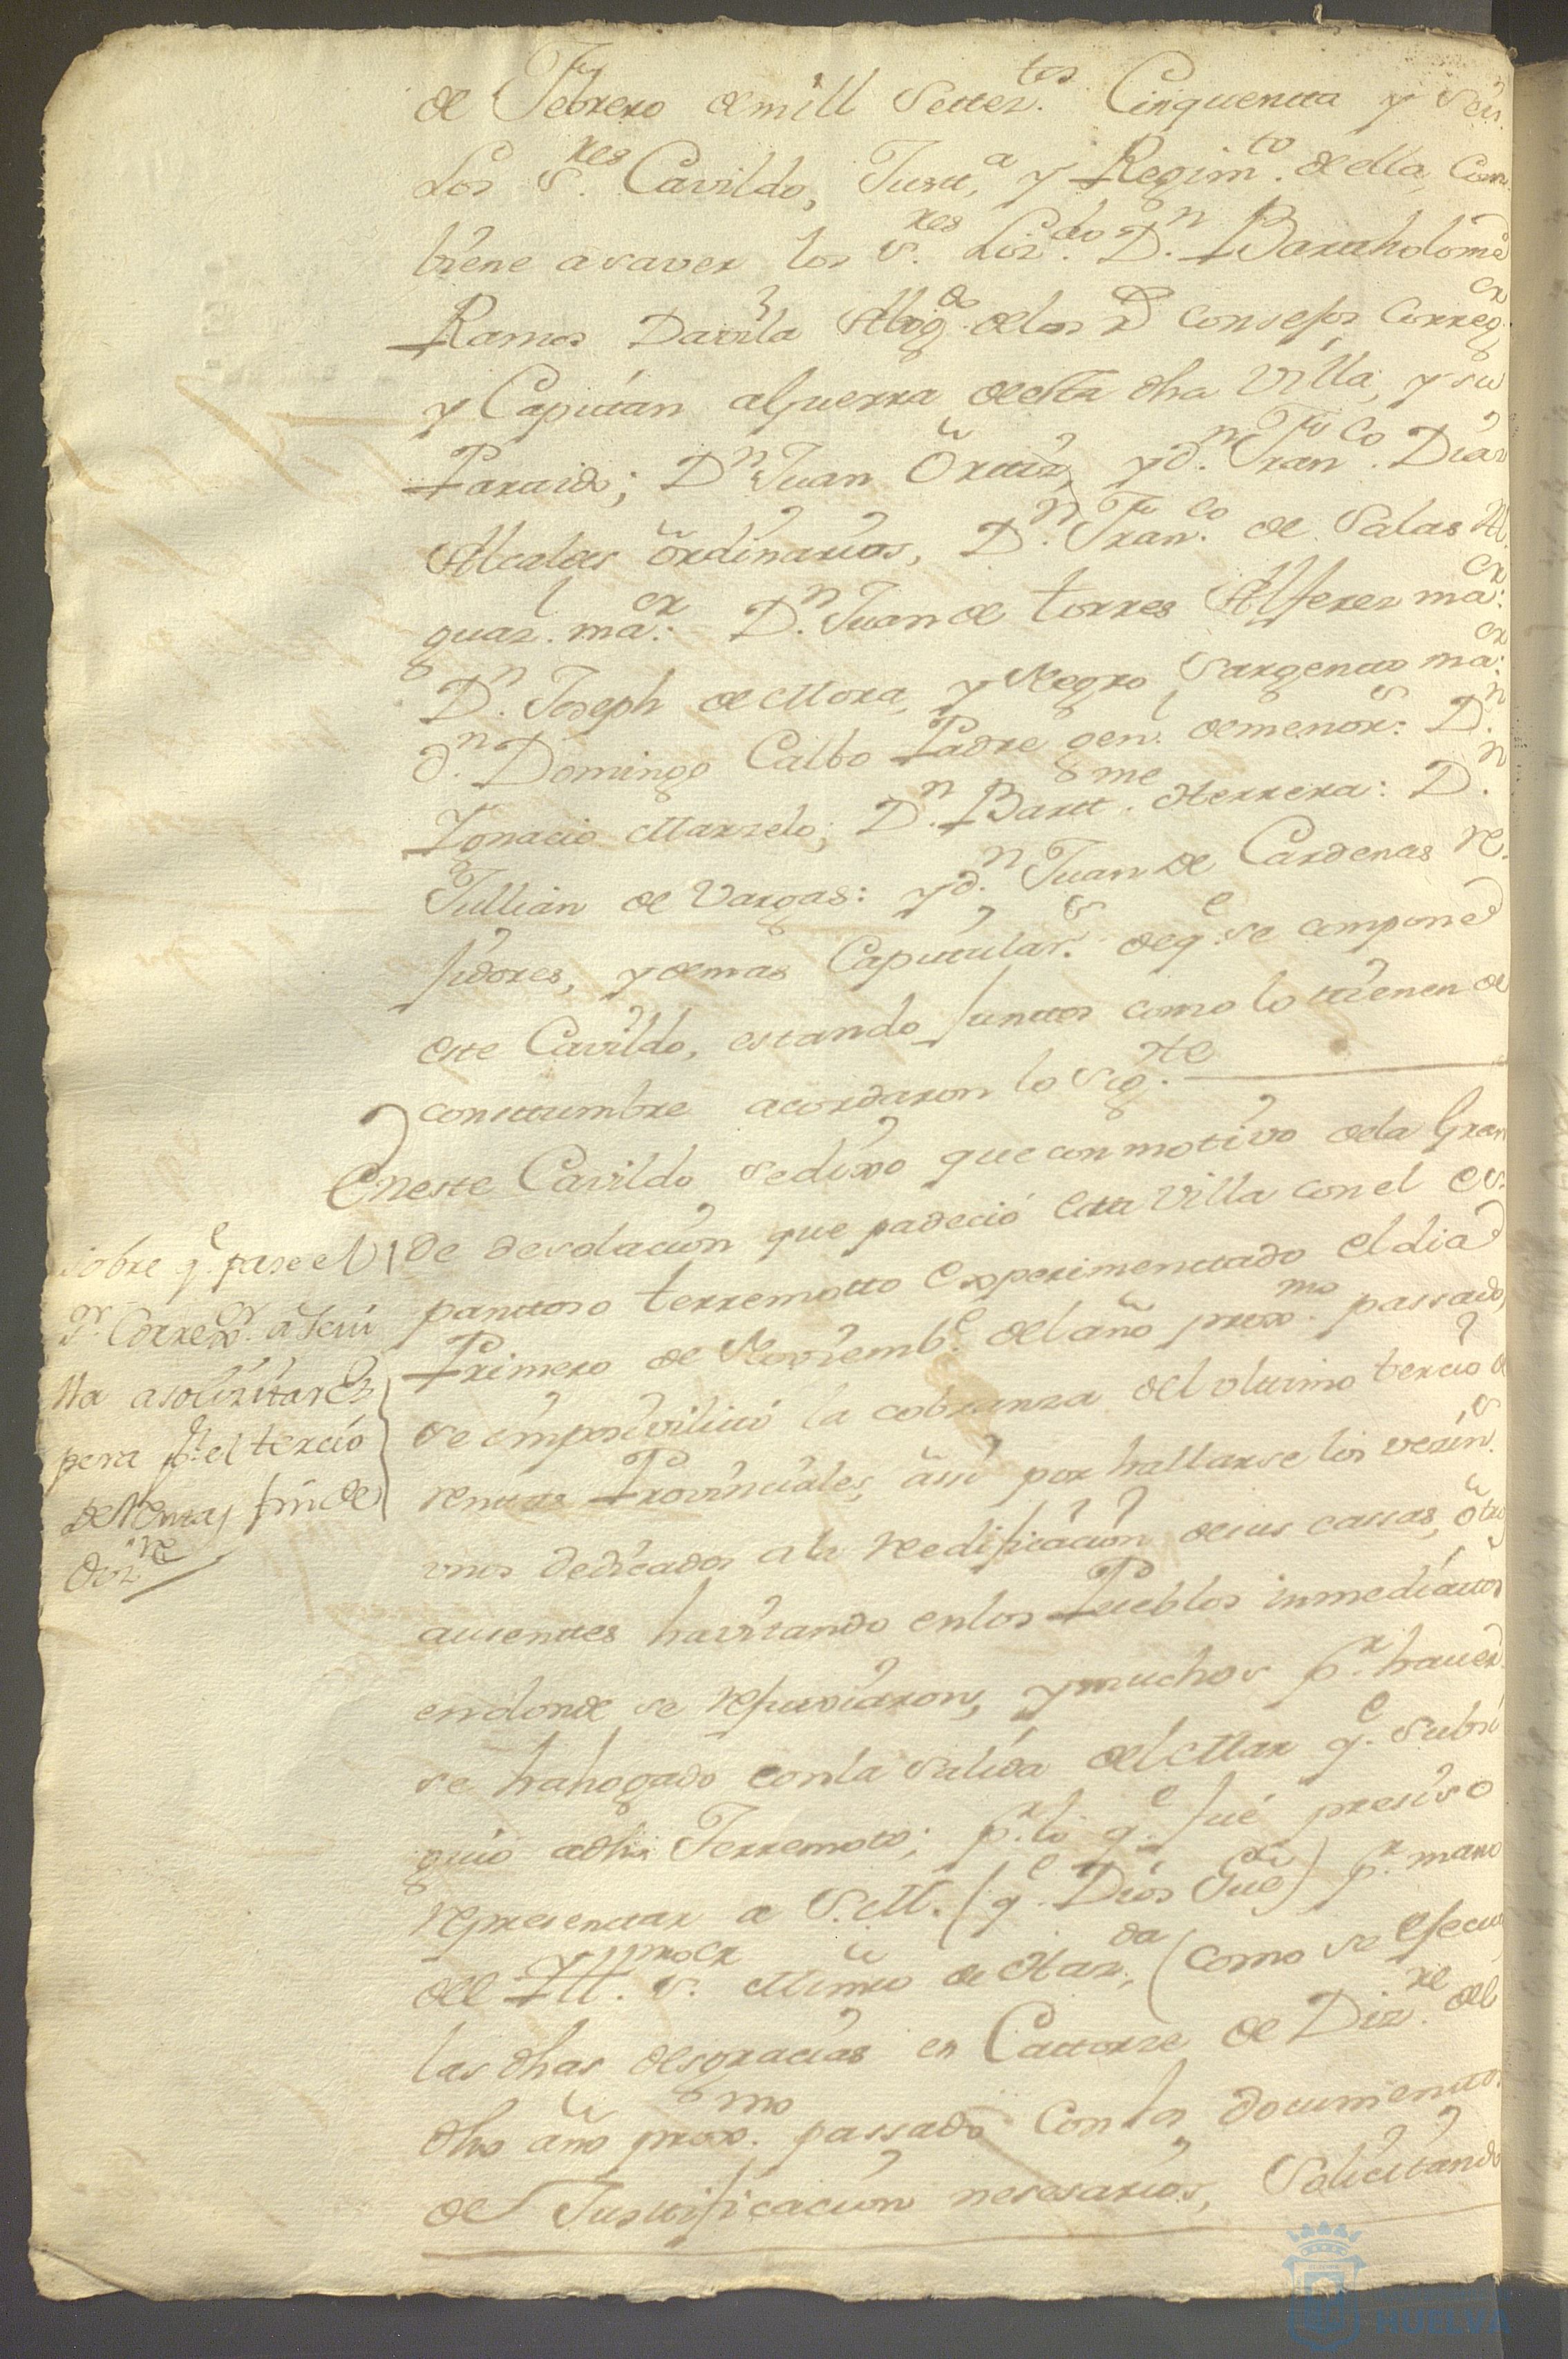 de Febrero de mill Settez.tos Cinquentta y Seis
Los S.res Cavildo, Justt.a y Regim.to de ella, Com
biene a saver los S.res Liz.do D.n Bartholome
Ramos Davila Abog.do de los R.s Consejos Correg.or
y Capitán a Guerra de esta dha Villa, y su
Partido; D.n Juan Ortiz, y d.n Fran.co Diaz
Alcaldes ordinarios, D.n Fran.co de Salas Al
guaz.l ma.or D.n Juan de torres Alferez ma.or
D.n Joseph de Mora, y Negro Sargento ma.or
d.n Domingo Calbo Padre gen.l de menor.s D.n
Ignacio Marzelo; D.n Bartt.me Herrera: D.n
Jullian de Vargas: y d.n Juan de Cardenas Re
jidores, y demas Capitular.s de q.e se compone
este Cavildo, estando juntos como lo tienen de
costtumbre acordaron lo Sig.te
En este Cavildo se dixo que con motivo de la Gran
de desolación que padeció esta Villa con el es
panttoso terremotto experimenttado el dia
Primero de Noviemb.e del año prox.mo passado,
se imposivilitó la cobranza del ultimo tercio de
renttas Provinciales, assi por hallarse los vecin.s
unos dedicados a la reedificación de sus cassas, otros
ausentes havitando en los Pueblos inmediattos
en donde se refuxiaron, y muchos p.r haver
se hahogado con la salida del Mar q.e subsi
guió a dho Terremoto; p.r lo q.e fué presiso
representtar a S.M. (q.e Dios Gue) p.r mano
del Ill.mo S.or Minro de Haz.da (como se efectuó
las dhas desgracias en Cattorze de Diz.re del
dho año prox.mo passado con los documenttos
de Justtificacion nesesarios, Solicitando
sobre q.e pase el
S.r Corre.or a Sevi
lla a solizitar es
pera p.r el tercio
de Rentas fin de
Diz.re
HUELVA